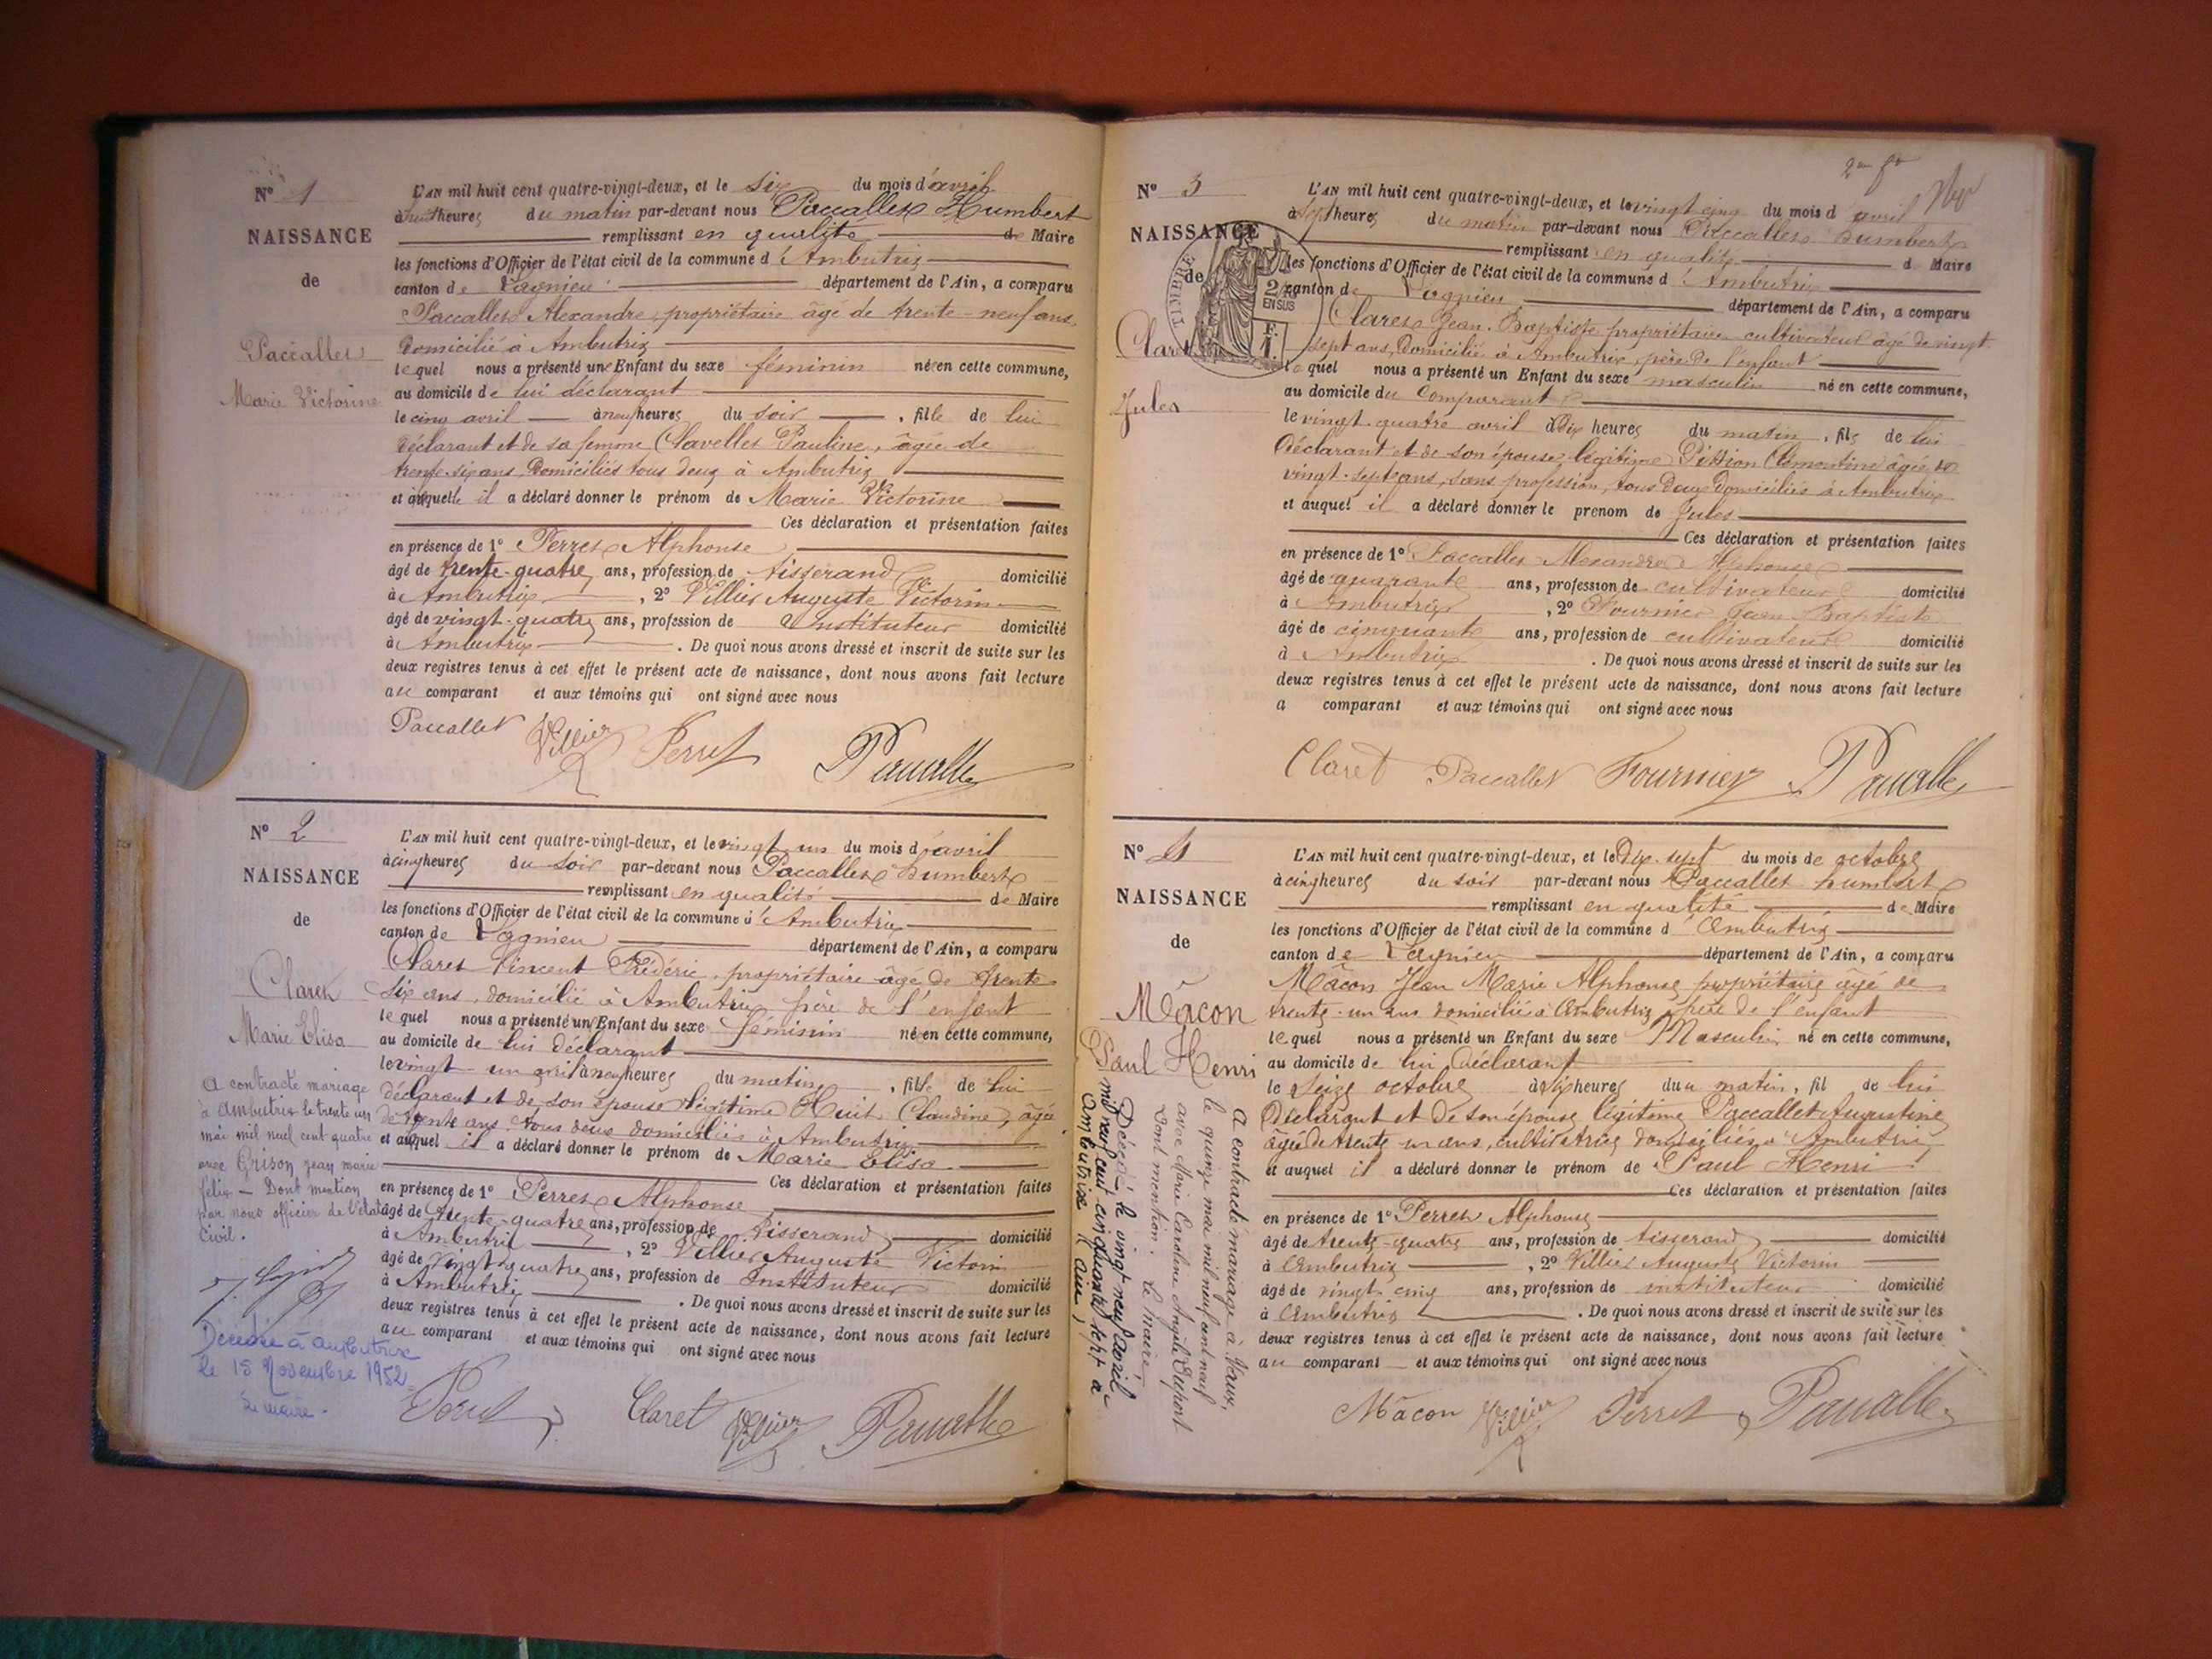 N° 1
NAISSANCE
de
Paccallet
Marie Victorine
L'AN mil huit cent quatre-vingt-deux, et le six du mois d'avril
à huit heures du matin par-devant nous Paccallet Humbert
remplissant en qualité de Maire
les fonctions d'Officier de l'état civil de la commune d'Ambutrix
canton de Lagnieu département de l'Ain, a comparu
Paccallet Alexandre, propriétaire âgé de trente-neuf ans,
Domicilié à Ambutrix
lequel nous a présenté une Enfant du sexe féminin née en cette commune,
au domicile de lui déclarant
le cinq avril à neuf heures du soir, fille de lui
déclarant et de sa femme Clavellet Pauline, âgée de
trente-six ans, Domiciliés tous deux à Ambutrix
et à laquelle il a déclaré donner le prénom de Marie Victorine
Ces déclaration et présentation faites
en présence de 1° Perret Alphonse
âgé de trente-quatre ans, profession de tisserand domicilié
à Ambutrix, 2° Villier Auguste Victorin
âgé de vingt-quatre ans, profession de Instituteur domicilié
à Ambutrix. De quoi nous avons dressé et inscrit de suite sur les
deux registres tenus à cet effet le présent acte de naissance, dont nous avons fait lecture
au comparant et aux témoins qui ont signé avec nous
Paccallet Villier Perret Paccallet
N° 2
NAISSANCE
de
Claret
Marie Elisa
A contracté mariage
à Ambutrix le trente un
mai mil neuf cent quatre
avec Grison Jean Marie
Félix — Dont mention
par nous officier de l'état
civil.
Décédée à Ambutrix
le 15 Novembre 1952
Le maire.
L'AN mil huit cent quatre-vingt-deux, et le vingt un du mois d'avril
à cinq heures du soir par-devant nous Paccallet Humbert
remplissant en qualité de Maire
les fonctions d'Officier de l'état civil de la commune d'Ambutrix
canton de Lagnieu département de l'Ain, a comparu
Claret Vincent Frédéric, propriétaire âgé de trente
six ans, domicilié à Ambutrix père de l'enfant
lequel nous a présenté un Enfant du sexe féminin née en cette commune,
au domicile de lui déclarant
le vingt-un avril à neuf heures du matin, fille de lui
déclarant et de son épouse légitime Huit Claudine, âgée
de trente ans, tous deux domiciliés à Ambutrix
et auquel il a déclaré donner le prénom de Marie Elisa
Ces déclaration et présentation faites
en présence de 1° Perret Alphonse
âgé de trente-quatre ans, profession de tisserand domicilié
à Ambutrix, 2° Villier Auguste Victorin
âgé de vingt-quatre ans, profession de Instituteur domicilié
à Ambutrix. De quoi nous avons dressé et inscrit de suite sur les
deux registres tenus à cet effet le présent acte de naissance, dont nous avons fait lecture
au comparant et aux témoins qui ont signé avec nous
Perret Claret Villier Paccallet
N° 3
NAISSANCE
de
Claret
Jules
TIMBRE
2/10
EN SUS
F.
1.
L'AN mil huit cent quatre-vingt-deux, et le vingt cinq du mois d'avril
à sept heures du matin par-devant nous Paccallet Humbert
remplissant en qualité de Maire
les fonctions d'Officier de l'état civil de la commune d'Ambutrix
canton de Lagnieu département de l'Ain, a comparu
Claret Jean-Baptiste propriétaire-cultivateur âgé de vingt-
sept ans, Domicilié à Ambutrix, père de l'enfant
lequel nous a présenté un Enfant du sexe masculin né en cette commune,
au domicile du comparant
le vingt-quatre avril à dix heures du matin, fils de lui
Déclarant et de son épouse légitime Pittion Clémentine âgée de
vingt-sept ans, sans profession, tous deux domiciliés à Ambutrix
et auquel il a déclaré donner le prénom de Jules
Ces déclaration et présentation faites
en présence de 1° Paccallet Alexandre Alphonse
âgé de quarante ans, profession de cultivateur domicilié
à Ambutrix, 2° Fournier Jean-Baptiste
âgé de cinquante ans, profession de cultivateur domicilié
à Ambutrix. De quoi nous avons dressé et inscrit de suite sur les
deux registres tenus à cet effet le présent acte de naissance, dont nous avons fait lecture
a comparant et aux témoins qui ont signé avec nous
Claret Paccallet Fournier Paccallet
N° 4
NAISSANCE
de
Mâcon
Paul Henri
A contracté mariage à Vaux,
le quinze mai mil neuf cent neuf
avec Marie Caroline Angèle Dupont
Dont mention. Le Maire
Décédé le vingt neuf avril
mil neuf cent cinquante sept à
Ambutrix (Ain)
L'AN mil huit cent quatre-vingt-deux, et le Dix-sept du mois de octobre
à cinq heures du soir par-devant nous Paccallet humbert
remplissant en qualité de Maire
les fonctions d'Officier de l'état civil de la commune d'Ambutrix
canton de Lagnieu département de l'Ain, a comparu
Mâcon Jean Marie Alphonse propriétaire âgé de
trente-un ans domicilié à Ambutrix père de l'enfant
lequel nous a présenté un Enfant du sexe Masculin né en cette commune,
au domicile de lui Déclarant
le seize octobre à six heures du matin, fil de lui
Déclarant et de son épouse légitime Paccallet Augustine
âgée de trente-un ans, cultivatrice domiciliés à Ambutrix
et auquel il a déclaré donner le prénom de Paul Henri
Ces déclaration et présentation faites
en présence de 1° Perret Alphonse
âgé de trente-quatre ans, profession de tisserand domicilié
à Ambutrix, 2° Villier Auguste Victorin
âgé de vingt-cinq ans, profession de instituteur domicilié
à Ambutrix. De quoi nous avons dressé et inscrit de suite sur les
deux registres tenus à cet effet le présent acte de naissance, dont nous avons fait lecture
au comparant et aux témoins qui ont signé avec nous
Mâcon Villier Perret Paccallet